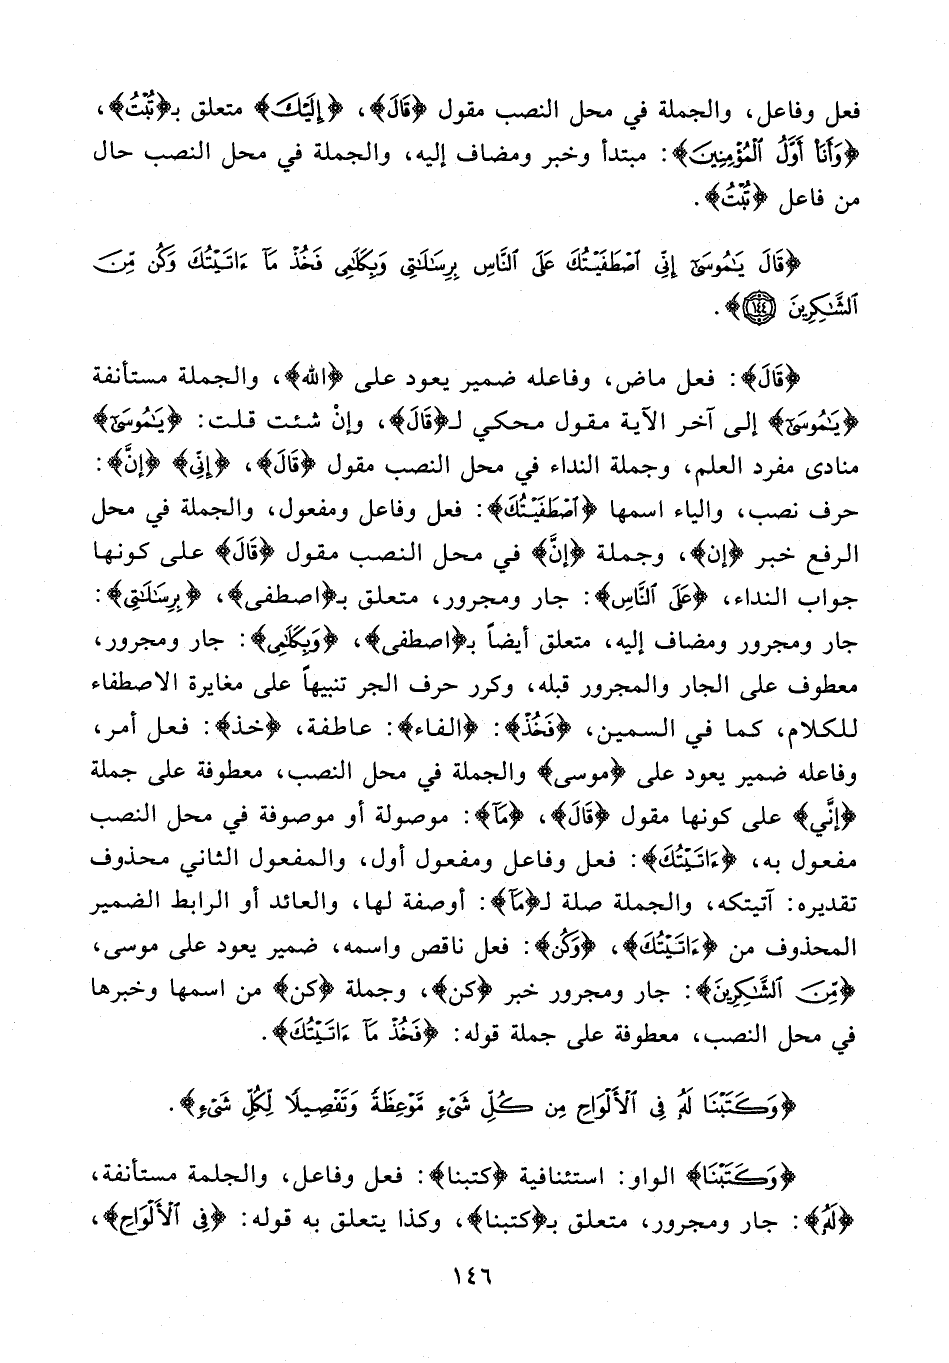 فعل وفاعل، والجملة في محل النصب مقول ﴿قَالَ﴾، ﴿إِلَيْكَ﴾ متعلق بـ﴿تُبْتُ﴾،
﴿وَأَنَا۠ أَوَّلُ ٱلْمُؤْمِنِينَ﴾: مبتدأ وخبر ومضاف إليه، والجملة في محل النصب حال
من فاعل ﴿تُبْتُ﴾.
﴿قَالَ يَٰمُوسَىٰٓ إِنِّي ٱصْطَفَيْتُكَ عَلَى ٱلنَّاسِ بِرِسَٰلَٰتِي وَبِكَلَٰمِي فَخُذْ مَآ ءَاتَيْتُكَ وَكُن مِّنَ
ٱلشَّٰكِرِينَ ١٤٤﴾.
﴿قَالَ﴾: فعل ماض، وفاعله ضمير يعود على ﴿الله﴾، والجملة مستأنفة
﴿يَٰمُوسَىٰٓ﴾ إلى آخر الآية مقول محكي لـ﴿قَالَ﴾، وإنْ شئت قلت: ﴿يَٰمُوسَىٰٓ﴾
منادى مفرد العلم، وجملة النداء في محل النصب مقول ﴿قَالَ﴾، ﴿إِنِّي﴾ ﴿إنَّ﴾:
حرف نصب، والياء اسمها ﴿ٱصْطَفَيْتُكَ﴾: فعل وفاعل ومفعول، والجملة في محل
الرفع خبر ﴿إن﴾، وجملة ﴿إنَّ﴾ في محل النصب مقول ﴿قَالَ﴾ على كونها
جواب النداء، ﴿عَلَى ٱلنَّاسِ﴾: جار ومجرور، متعلق بـ﴿اصطفى﴾، ﴿بِرِسَٰلَٰتِي﴾:
جار ومجرور ومضاف إليه، متعلق أيضاً بـ﴿اصطفى﴾، ﴿وَبِكَلَٰمِي﴾: جار ومجرور،
معطوف على الجار والمجرور قبله، وكرر حرف الجر تنبيهاً على مغايرة الاصطفاء
للكلام، كما في السمين، ﴿فَخُذْ﴾: ﴿الفاء﴾: عاطفة، ﴿خذ﴾: فعل أمر،
وفاعله ضمير يعود على ﴿موسى﴾ والجملة في محل النصب، معطوفة على جملة
﴿إنَّي﴾ على كونها مقول ﴿قَالَ﴾، ﴿مَآ﴾: موصولة أو موصوفة في محل النصب
مفعول به، ﴿ءَاتَيْتُكَ﴾: فعل وفاعل ومفعول أول، والمفعول الثاني محذوف
تقديره: آتيتكه، والجملة صلة لـ﴿مَآ﴾: أوصفة لها، والعائد أو الرابط الضمير
المحذوف من ﴿ءَاتَيْتُكَ﴾، ﴿وَكُن﴾: فعل ناقص واسمه، ضمير يعود على موسى،
﴿مِّنَ ٱلشَّٰكِرِينَ﴾: جار ومجرور خبر ﴿كن﴾، وجملة ﴿كن﴾ من اسمها وخبرها
في محل النصب، معطوفة على جملة قوله: ﴿فَخُذْ مَآ ءَاتَيْتُكَ﴾.
﴿وَكَتَبْنَا لَهُۥ فِي ٱلْأَلْوَاحِ مِن كُلِّ شَيْءٍ مَّوْعِظَةً وَتَفْصِيلًا لِّكُلِّ شَيْءٍ﴾.
﴿وَكَتَبْنَا﴾ الواو: استئنافية ﴿كتبنا﴾: فعل وفاعل، والجلمة مستأنفة،
﴿لَهُۥ﴾: جار ومجرور، متعلق بـ﴿كتبنا﴾، وكذا يتعلق به قوله: ﴿فِي ٱلْأَلْوَاحِ﴾،
١٤٦